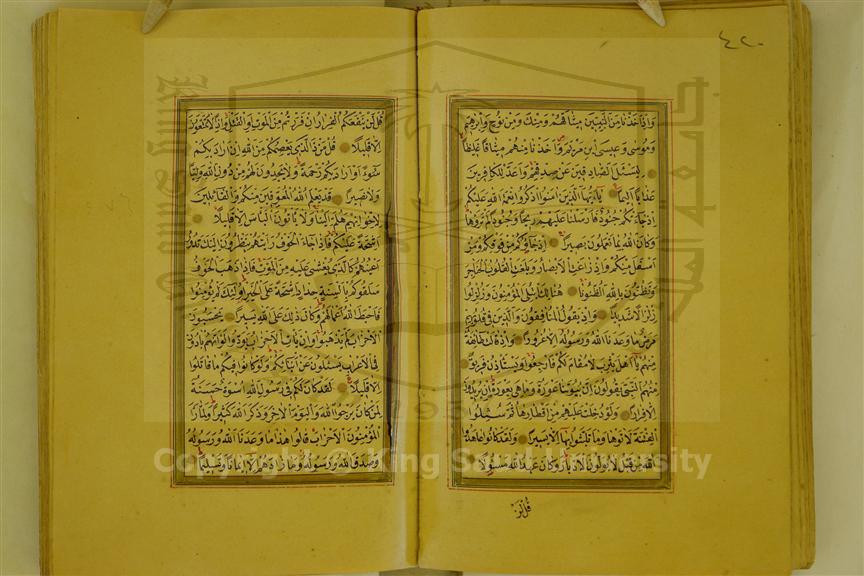 ٤٢٠
وَاِذْ اَخَذْنَا مِنَ النَّبِيّٖنَ مِيثَاقَهُمْ وَمِنْكَ وَمِنْ نُوحٍ وَاِبْرٰهِيمَ
وَمُوسٰى وَعِيسَى ابْنِ مَرْيَمَ وَاَخَذْنَا مِنْهُمْ مِيثَاقًا غَلِيظًا
لِيَسْئَلَ الصَّادِقِينَ عَنْ صِدْقِهِمْ وَاَعَدَّ لِلْكَافِرِينَ
عَذَابًا اَلِيمًا يَا اَيُّهَا الَّذِينَ اٰمَنُوا اذْكُرُوا نِعْمَةَ اللّٰهِ عَلَيْكُمْ
اِذْ جَاءَتْكُمْ جُنُودٌ فَاَرْسَلْنَا عَلَيْهِمْ رِيحًا وَجُنُودًا لَمْ تَرَوْهَا
وَكَانَ اللّٰهُ بِمَا تَعْمَلُونَ بَصِيرًا اِذْ جَاؤُكُمْ مِنْ فَوْقِكُمْ وَمِنْ
اَسْفَلَ مِنْكُمْ وَاِذْ زَاغَتِ الْاَبْصَارُ وَبَلَغَتِ الْقُلُوبُ الْحَنَاجِرَ
وَتَظُنُّونَ بِاللّٰهِ الظُّنُونَا هُنَالِكَ ابْتُلِيَ الْمُؤْمِنُونَ وَزُلْزِلُوا
زِلْزَالًا شَدِيدًا وَاِذْ يَقُولُ الْمُنَافِقُونَ وَالَّذِينَ فِي قُلُوبِهِمْ
مَرَضٌ مَا وَعَدَنَا اللّٰهُ وَرَسُولُهُ اِلَّا غُرُورًا وَاِذْ قَالَتْ طَائِفَةٌ
مِنْهُمْ يَا اَهْلَ يَثْرِبَ لَا مُقَامَ لَكُمْ فَارْجِعُوا وَيَسْتَاْذِنُ فَرِيقٌ
مِنْهُمُ النَّبِيَّ يَقُولُونَ اِنَّ بُيُوتَنَا عَوْرَةٌ وَمَا هِيَ بِعَوْرَةٍ اِنْ يُرِيدُونَ
اِلَّا فِرَارًا وَلَوْ دُخِلَتْ عَلَيْهِمْ مِنْ اَقْطَارِهَا ثُمَّ سُئِلُوا
الْفِتْنَةَ لَاٰتَوْهَا وَمَا تَلَبَّثُوا بِهَا اِلَّا يَسِيرًا وَلَقَدْ كَانُوا عَاهَدُوا
اللّٰهَ مِنْ قَبْلُ لَا يُوَلُّونَ الْاَدْبَارَ وَكَانَ عَهْدُ اللّٰهِ مَسْؤُلًا
قُلْ لَنْ
قُلْ لَنْ يَنْفَعَكُمُ الْفِرَارُ اِنْ فَرَرْتُمْ مِنَ الْمَوْتِ اَوِ الْقَتْلِ وَاِذًا لَا تُمَتَّعُونَ
اِلَّا قَلِيلًا قُلْ مَنْ ذَا الَّذِي يَعْصِمُكُمْ مِنَ اللّٰهِ اِنْ اَرَادَ بِكُمْ
سُوءًا اَوْ اَرَادَ بِكُمْ رَحْمَةً وَلَا يَجِدُونَ لَهُمْ مِنْ دُونِ اللّٰهِ وَلِيًّا
وَلَا نَصِيرًا قَدْ يَعْلَمُ اللّٰهُ الْمُعَوِّقِينَ مِنْكُمْ وَالْقَائِلِينَ
لِاِخْوَانِهِمْ هَلُمَّ اِلَيْنَا وَلَا يَاْتُونَ الْبَاْسَ اِلَّا قَلِيلًا
اَشِحَّةً عَلَيْكُمْ فَاِذَا جَاءَ الْخَوْفُ رَاَيْتَهُمْ يَنْظُرُونَ اِلَيْكَ تَدُورُ
اَعْيُنُهُمْ كَالَّذِي يُغْشٰى عَلَيْهِ مِنَ الْمَوْتِ فَاِذَا ذَهَبَ الْخَوْفُ
سَلَقُوكُمْ بِاَلْسِنَةٍ حِدَادٍ اَشِحَّةً عَلَى الْخَيْرِ اُولٰئِكَ لَمْ يُؤْمِنُوا
فَاَحْبَطَ اللّٰهُ اَعْمَالَهُمْ وَكَانَ ذٰلِكَ عَلَى اللّٰهِ يَسِيرًا يَحْسَبُونَ
الْاَحْزَابَ لَمْ يَذْهَبُوا وَاِنْ يَاْتِ الْاَحْزَابُ يَوَدُّوا لَوْ اَنَّهُمْ بَادُونَ
فِي الْاَعْرَابِ يَسْئَلُونَ عَنْ اَنْبَائِكُمْ وَلَوْ كَانُوا فِيكُمْ مَا قَاتَلُوا
اِلَّا قَلِيلًا لَقَدْ كَانَ لَكُمْ فِي رَسُولِ اللّٰهِ اُسْوَةٌ حَسَنَةٌ
لِمَنْ كَانَ يَرْجُوا اللّٰهَ وَالْيَوْمَ الْاٰخِرَ وَذَكَرَ اللّٰهَ كَثِيرًا وَلَمَّا رَاَ
الْمُؤْمِنُونَ الْاَحْزَابَ قَالُوا هٰذَا مَا وَعَدَنَا اللّٰهُ وَرَسُولُهُ
وَصَدَقَ اللّٰهُ وَرَسُولُهُ وَمَا زَادَهُمْ اِلَّا اِيمَانًا وَتَسْلِيمًا
Copyright © King Saud University